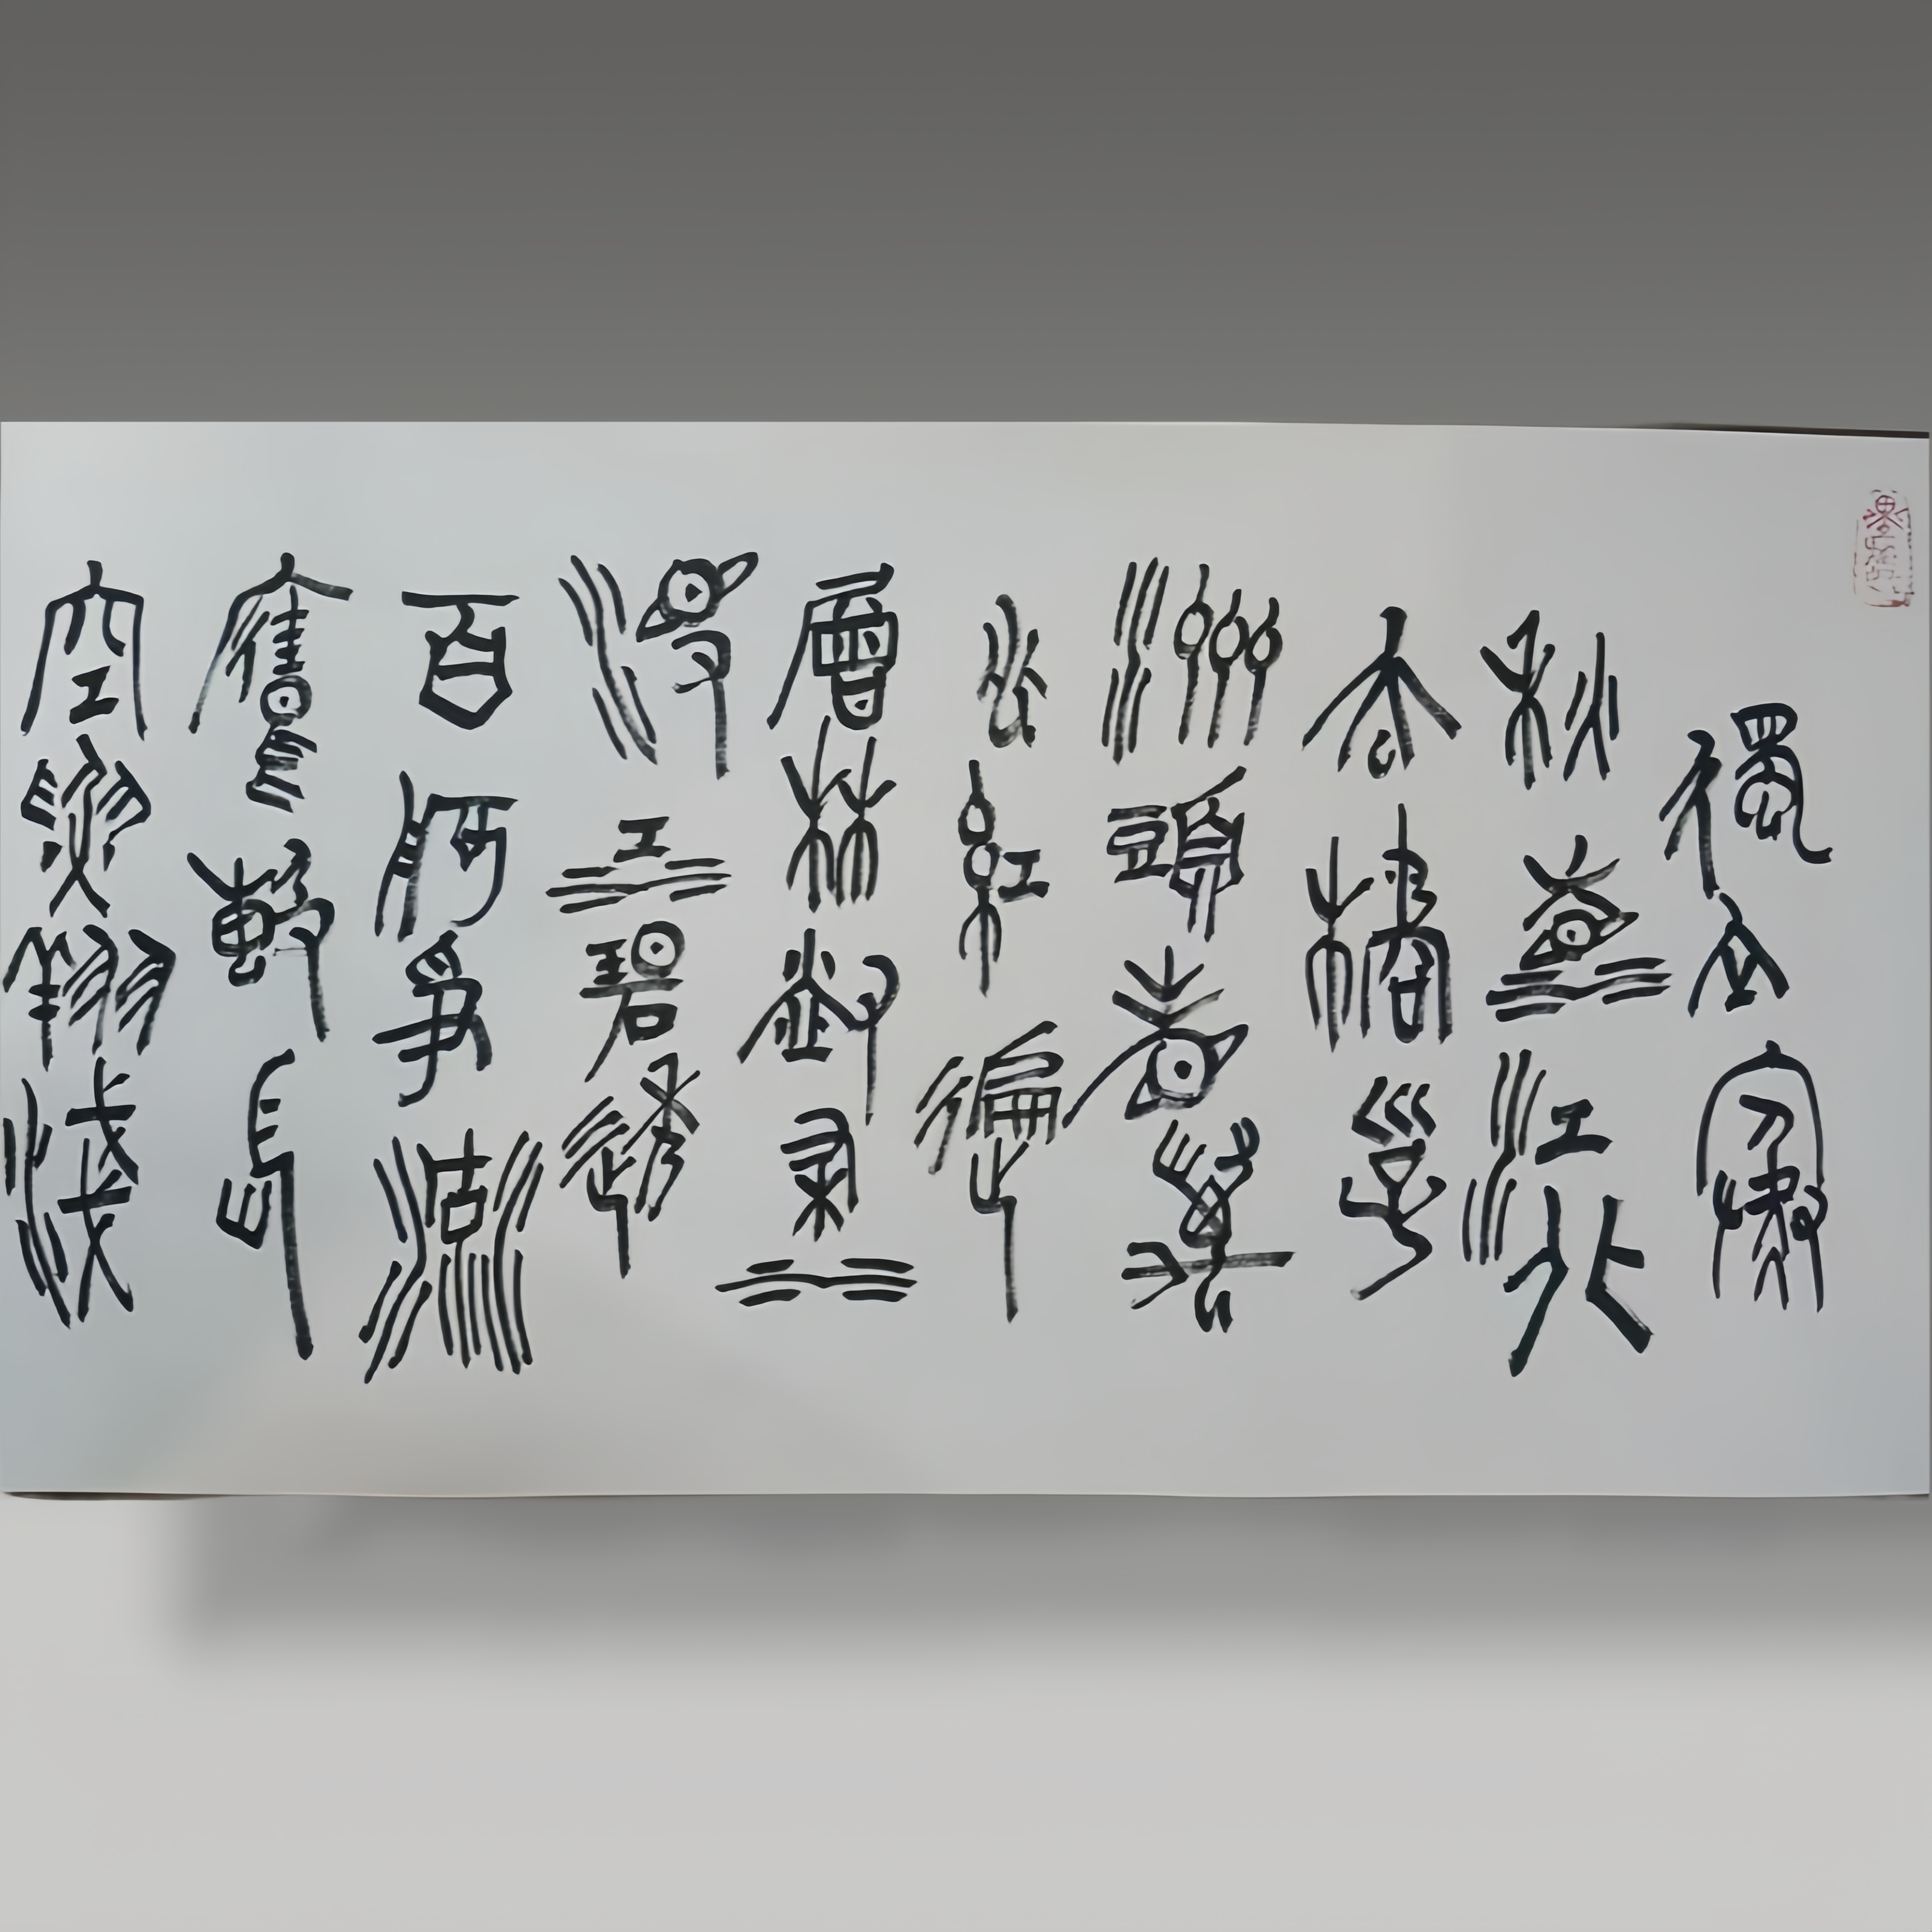 獨立寒
秋湘江北
去橘子
洲頭看萬
山紅徧
層林盡染
漫江碧透
百舸爭流
鷹擊長
空魚翔淺